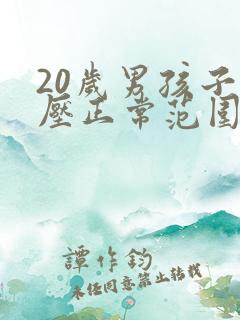 20歲男孩子
壓正常范圍
譚作鈞
未經同意禁止轉載